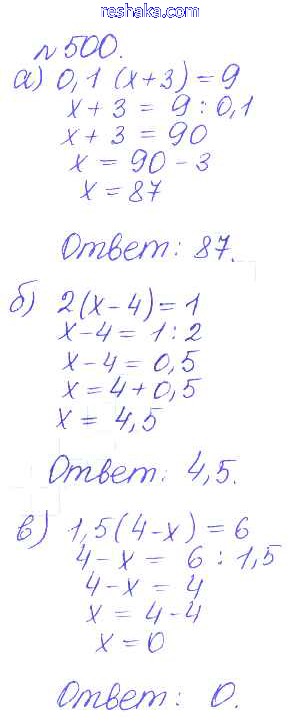 reshaka.com
№500.
а) 0,1(х+3)=9
х+3=9:0,1
х+3=90
х=90-3
х=87
Ответ: 87.
б) 2(х-4)=1
х-4=1:2
х-4=0,5
х=4+0,5
х=4,5
Ответ: 4,5.
в) 1,5(4-х)=6
4-х=6:1,5
4-х=4
х=4-4
х=0
Ответ: 0.